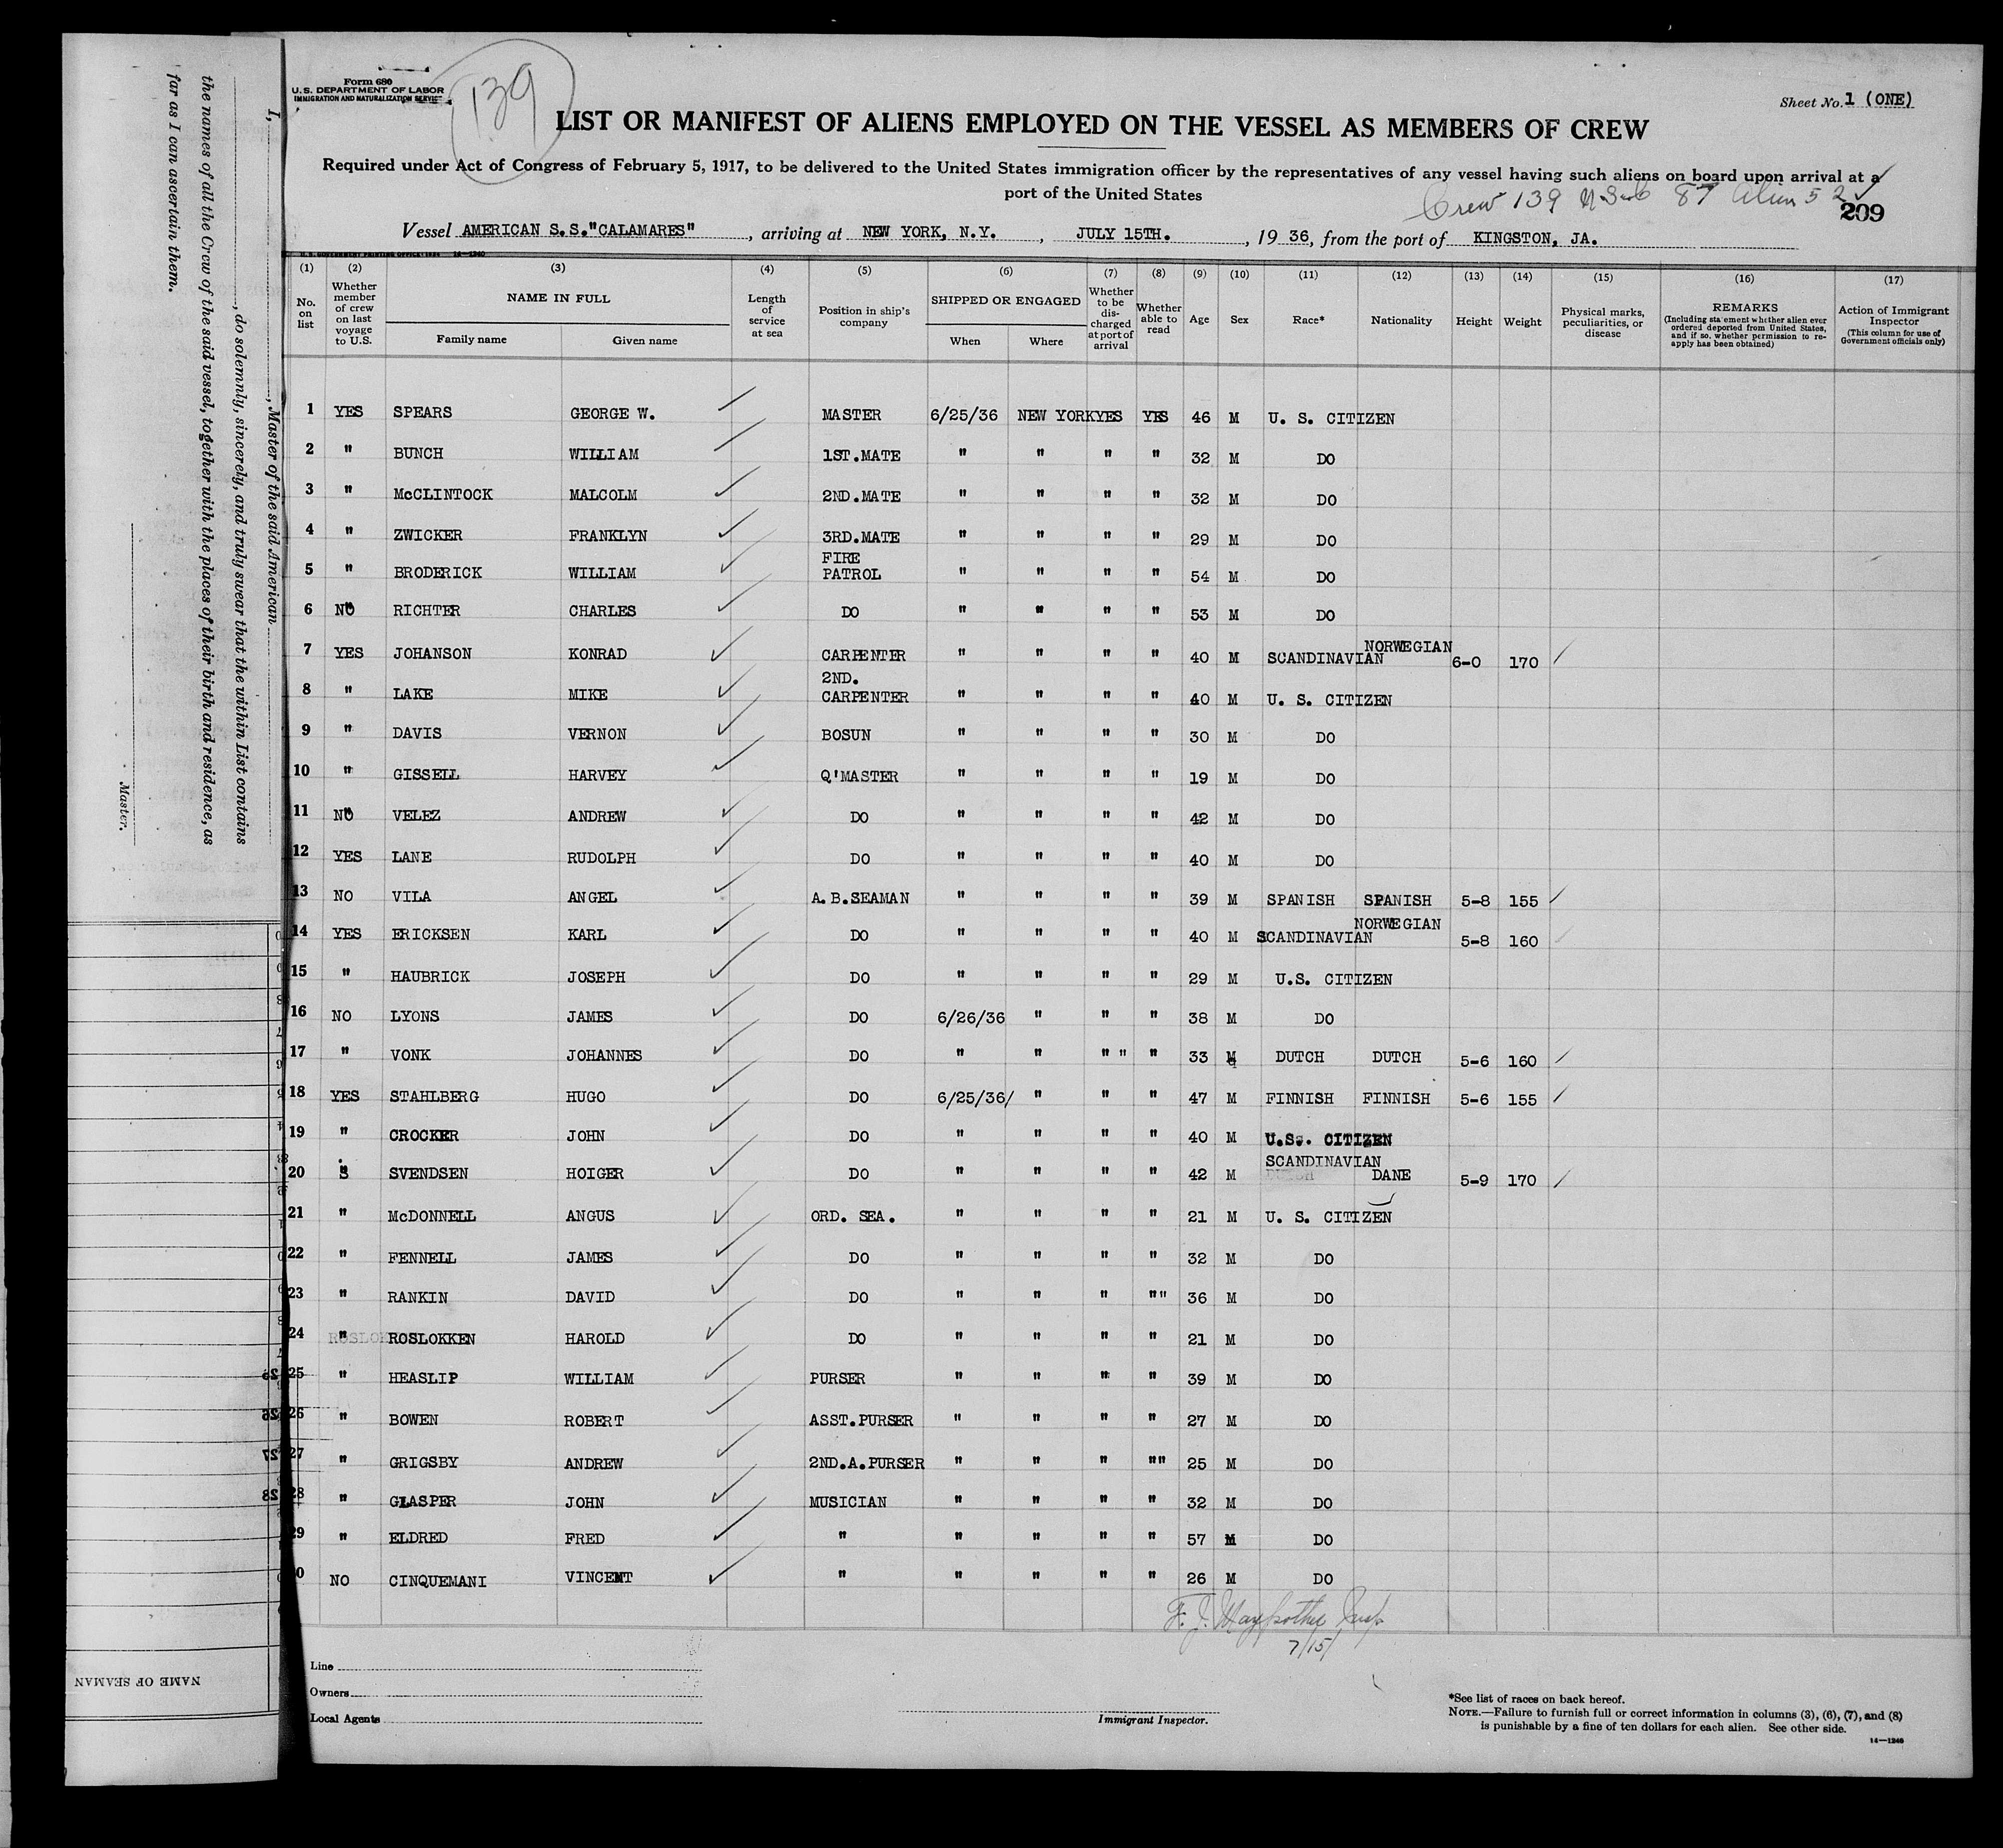 Form 680
U. S. DEPARTMENT OF LABOR
IMMIGRATION AND NATURALIZATION SERVICE
139
Sheet No. 1 (ONE)
LIST OR MANIFEST OF ALIENS EMPLOYED ON THE VESSEL AS MEMBERS OF CREW
Required under Act of Congress of February 5, 1917, to be delivered to the United States immigration officer by the representatives of any vessel having such aliens on board upon arrival at a
port of the United States
Crew 139 87 Alien 52
209
Vessel AMERICAN S.S."CALAMARES", arriving at NEW YORK, N.Y., JULY 15TH., 19 36, from the port of KINGSTON, JA.
(1) (2) (3) (4) (5) (6) (7) (8) (9) (10) (11) (12) (13) (14) (15) (16) (17)
No. on list
Whether member of crew on last voyage to U.S.
NAME IN FULL
Family name Given name
Length of service at sea
Position in ship's company
SHIPPED OR ENGAGED
When Where
Whether to be discharged at port of arrival
Whether able to read
Age Sex Race* Nationality Height Weight
Physical marks, peculiarities, or disease
REMARKS
(Including statement whether alien ever ordered deported from United States, and if so, whether permission to re-apply has been obtained)
Action of Immigrant Inspector
(This column for use of Government officials only)
1 YES SPEARS GEORGE W. MASTER 6/25/36 NEW YORK YES YES 46 M U. S. CITIZEN
2 " BUNCH WILLIAM 1ST.MATE " " " " 32 M DO
3 " McCLINTOCK MALCOLM 2ND.MATE " " " " 32 M DO
4 " ZWICKER FRANKLYN 3RD.MATE " " " " 29 M DO
5 " BRODERICK WILLIAM FIRE PATROL " " " " 54 M DO
6 NO RICHTER CHARLES DO " " " " 53 M DO
7 YES JOHANSON KONRAD CARPENTER " " " " 40 M SCANDINAVIAN NORWEGIAN 6-0 170
8 " LAKE MIKE 2ND. CARPENTER " " " " 40 M U. S. CITIZEN
9 " DAVIS VERNON BOSUN " " " " 30 M DO
10 " GISSELL HARVEY Q'MASTER " " " " 19 M DO
11 NO VELEZ ANDREW DO " " " " 42 M DO
12 YES LANE RUDOLPH DO " " " " 40 M DO
13 NO VILA ANGEL A.B.SEAMAN " " " " 39 M SPANISH SPANISH 5-8 155
14 YES ERICKSEN KARL DO " " " " 40 M SCANDINAVIAN NORWEGIAN 5-8 160
15 " HAUBRICK JOSEPH DO " " " " 29 M U.S. CITIZEN
16 NO LYONS JAMES DO 6/26/36 " " " 38 M DO
17 " VONK JOHANNES DO " " " " " 33 M DUTCH DUTCH 5-6 160
18 YES STAHLBERG HUGO DO 6/25/36/ " " " 47 M FINNISH FINNISH 5-6 155
19 " CROCKER JOHN DO " " " " 40 M U.S. CITIZEN
20 " SVENDSEN HOIGER DO " " " " 42 M SCANDINAVIAN DANE 5-9 170
21 " McDONNELL ANGUS ORD. SEA. " " " " 21 M U. S. CITIZEN
22 " FENNELL JAMES DO " " " " 32 M DO
23 " RANKIN DAVID DO " " " "" 36 M DO
24 " ROSLOKKEN HAROLD DO " " " " 21 M DO
25 " HEASLIP WILLIAM PURSER " " " " 39 M DO
26 " BOWEN ROBERT ASST.PURSER " " " " 27 M DO
27 " GRIGSBY ANDREW 2ND.A.PURSER " " " "" 25 M DO
28 " GLASPER JOHN MUSICIAN " " " " 32 M DO
29 " ELDRED FRED " " " " " 57 M DO
0 NO CINQUEMANI VINCENT " " " " " 26 M DO
7/15/
Line
Owners
Local Agents
Immigrant Inspector.
*See list of races on back hereof.
NOTE.—Failure to furnish full or correct information in columns (3), (6), (7), and (8)
is punishable by a fine of ten dollars for each alien. See other side.
14—1240
I, , Master of the said American
, do solemnly, sincerely, and truly swear that the within List contains
the names of all the Crew of the said vessel, together with the places of their birth and residence, as
far as I can ascertain them.
Master.
NAME OF SEAMAN